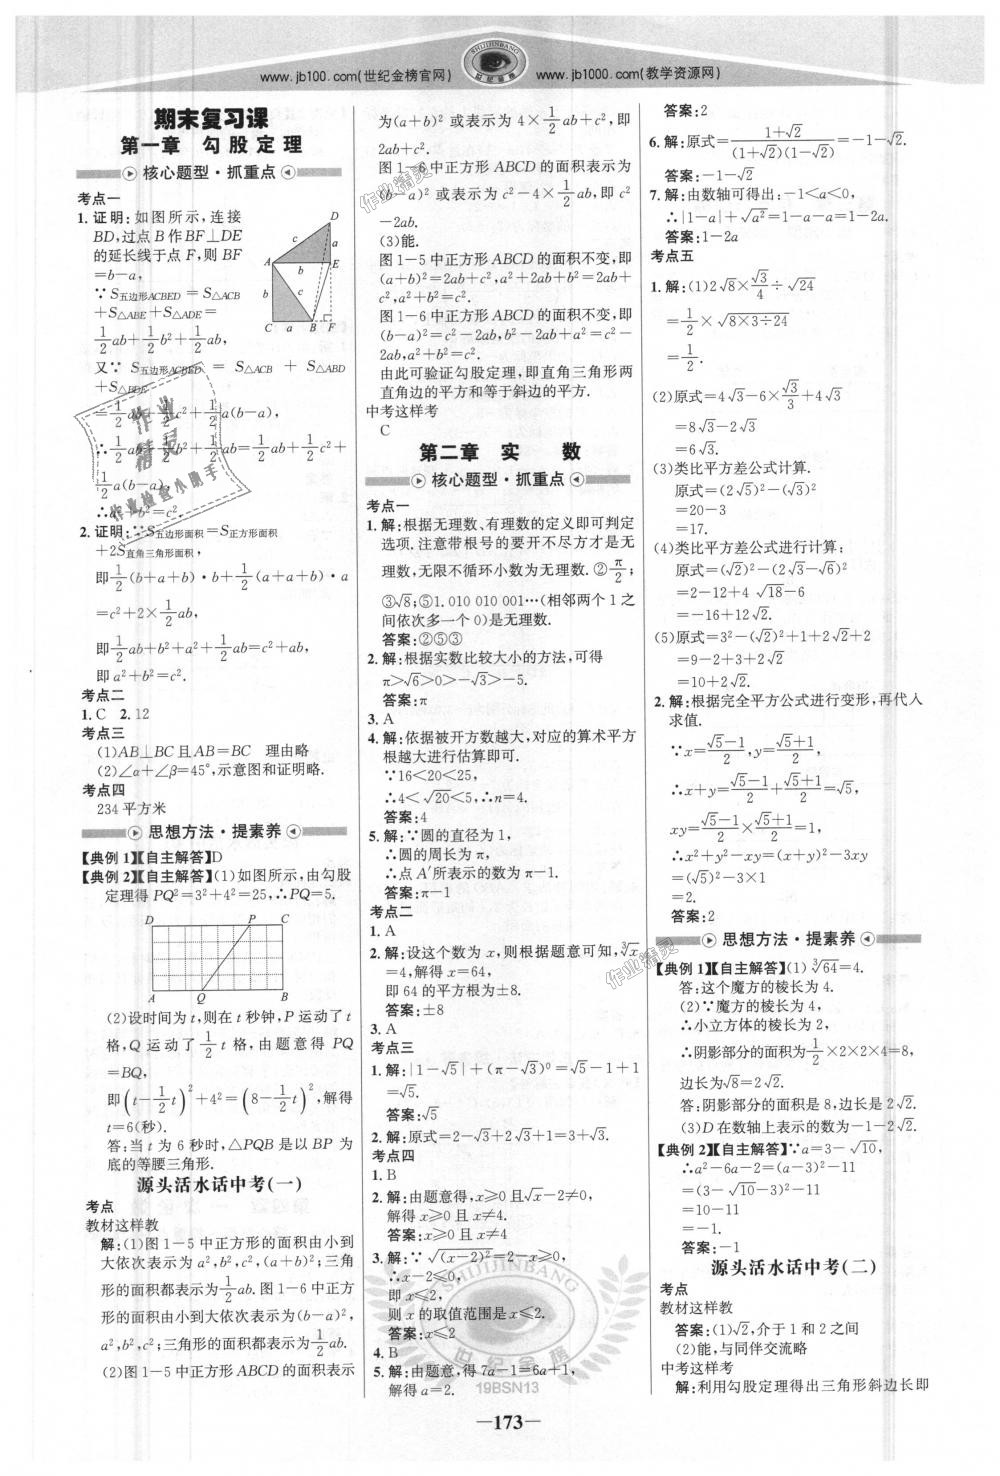 www.jb100.com(世纪金榜官网)
SHIJIJINBANG
世纪金榜
www.jb1000.com(教学资源网)
期末复习课
第一章 勾股定理
核心题型·抓重点
考点一
1.证明:如图所示,连接
BD,过点B作BF⊥DE
的延长线于点F,则BF
=b-a,
∵S五边形ACBED=S△ACB
+S△ABE+S△ADE=
1/2ab+1/2b²+1/2ab,
又∵S五边形ACBED=S△ACB+S△ABD
+S△BDE
=1/2ab+1/2c²+1/2a(b-a),
∴1/2ab+1/2b²+1/2ab=1/2ab+1/2c²+
1/2a(b-a),
∴a²+b²=c².
D
c
a
A
E
b
b
c
C a B F
2.证明:∵S五边形面积=S正方形面积
+2S直角三角形面积,
即1/2(b+a+b)·b+1/2(a+a+b)·a
=c²+2×1/2ab,
即1/2ab+b²+a²+1/2ab=c²+ab,
即a²+b²=c².
考点二
1.C 2.12
考点三
(1)AB⊥BC且AB=BC 理由略
(2)∠α+∠β=45°,示意图和证明略.
考点四
234平方米
思想方法·提素养
【典例1】【自主解答】D
【典例2】【自主解答】(1)如图所示,由勾股
定理得PQ²=3²+4²=25,∴PQ=5.
D P C
A Q B
(2)设时间为t,则在t秒钟,P运动了t
格,Q运动了1/2t格,由题意得PQ
=BQ,
即(t-1/2t)²+4²=(8-1/2t)²,解得
t=6(秒).
答:当t为6秒时,△PQB是以BP为
底的等腰三角形.
源头活水话中考(一)
考点
教材这样教
解:(1)图1-5中正方形的面积由小到
大依次表示为a²,b²,c²,(a+b)²;三角
形的面积都表示为1/2ab.图1-6中正方
形的面积由小到大依次表示为(b-a)²,
a²,b²,c²;三角形的面积都表示为1/2ab.
(2)图1-5中正方形ABCD的面积表示
为(a+b)²或表示为4×1/2ab+c²,即
2ab+c².
图1-6中正方形ABCD的面积表示为
(b-a)²或表示为c²-4×1/2ab,即c²
-2ab.
(3)能.
图1-5中正方形ABCD的面积不变,即
(a+b)²=2ab+c²,a²+2ab+b²=2ab+
c²,a²+b²=c².
图1-6中正方形ABCD的面积不变,即
(b-a)²=c²-2ab,b²-2ab+a²=c²-
2ab,a²+b²=c².
由此可验证勾股定理,即直角三角形两
直角边的平方和等于斜边的平方.
中考这样考
C
第二章 实 数
核心题型·抓重点
考点一
1.解:根据无理数、有理数的定义即可判定
选项.注意带根号的要开不尽方才是无
理数,无限不循环小数为无理数.②π/2;
③√8;⑤1.010 010 001…(相邻两个1之
间依次多一个0)是无理数.
答案:②⑤③
2.解:根据实数比较大小的方法,可得
π>√6>0>-√3>-5.
答案:π
3.A
4.解:依据被开方数越大,对应的算术平方
根越大进行估算即可.
∵16<20<25,
∴4<√20<5,∴n=4.
答案:4
5.解:∵圆的直径为1,
∴圆的周长为π,
∴点A′所表示的数为π-1.
答案:π-1
考点二
1.A
2.解:设这个数为x,则根据题意可知,∛x
=4,解得x=64,
即64的平方根为±8.
答案:±8
3.A
考点三
1.解:|1-√5|+(π-√3)⁰=√5-1+1
=√5.
答案:√5
2.解:原式=2-√3+2√3+1=3+√3.
考点四
1.B
2.解:由题意得,x≥0且√x-2≠0,
解得x≥0且x≠4.
答案:x≥0且x≠4
3.解:∵√(x-2)²=2-x≥0,
∴x-2≤0,
即x≤2,
则x的取值范围是x≤2.
答案:x≤2
4.B
5.解:由题意,得7a-1=6a+1,
解得a=2.
答案:2
6.解:原式=(1+√2)/((1+√2)(1-√2))=-1-√2.
答案:-1-√2
7.解:由数轴可得出:-1<a<0,
∴|1-a|+√a²=1-a-a=1-2a.
答案:1-2a
考点五
1.解:(1)2√8×√3/4÷√24
=1/2×√8×3÷24
=1/2.
(2)原式=4√3-6×√3/3+4√3
=8√3-2√3
=6√3.
(3)类比平方差公式计算.
原式=(2√5)²-(√3)²
=20-3
=17.
(4)类比平方差公式进行计算:
原式=(√2)²-(2√3-√6)²
=2-12+4√18-6
=-16+12√2.
(5)原式=3²-(√2)²+1+2√2+2
=9-2+3+2√2
=10+2√2.
2.解:根据完全平方公式进行变形,再代人
求值.
∵x=(√5-1)/2,y=(√5+1)/2,
∴x+y=(√5-1)/2+(√5+1)/2=√5,
xy=(√5-1)/2×(√5+1)/2=1,
∴x²+y²-xy=(x+y)²-3xy
=(√5)²-3×1
=2.
答案:2
思想方法·提素养
【典例1】【自主解答】(1)∛64=4.
答:这个魔方的棱长为4.
(2)∵魔方的棱长为4,
∴小立方体的棱长为2,
∴阴影部分的面积为1/2×2×2×4=8,
边长为√8=2√2.
答:阴影部分的面积是8,边长是2√2.
(3)D在数轴上表示的数为-1-2√2.
【典例2】【自主解答】∵a=3-√10,
∴a²-6a-2=(a-3)²-11
=(3-√10-3)²-11
=10-11
=-1.
答案:-1
源头活水话中考(二)
考点
教材这样教
答案:(1)√2,介于1和2之间
(2)能,与同伴交流略
中考这样考
解:利用勾股定理得出三角形斜边长即
作业精灵
作业检查小助手
作业精灵
作业精灵
SHIJIJINBANG
世纪金榜
19BSN13
—173—